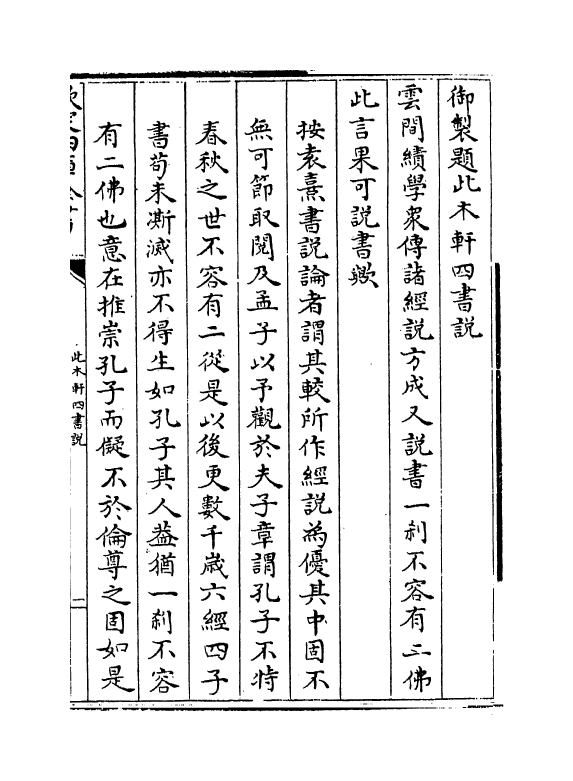 御製題此木軒四書說
雲間績學衆傳諸經說方成又說書一刹不容有二佛
此言果可說書歟
按袁熹書說論者謂其較所作經說為優其中固不
無可節取閱及孟子以予觀於夫子章謂孔子不特
春秋之世不容有二從是以後更數千歳六經四子
書苟未澌滅亦不得生如孔子其人葢猶一刹不容
有二佛也意在推崇孔子而儗不於倫尊之固如是
此木軒四書說
二